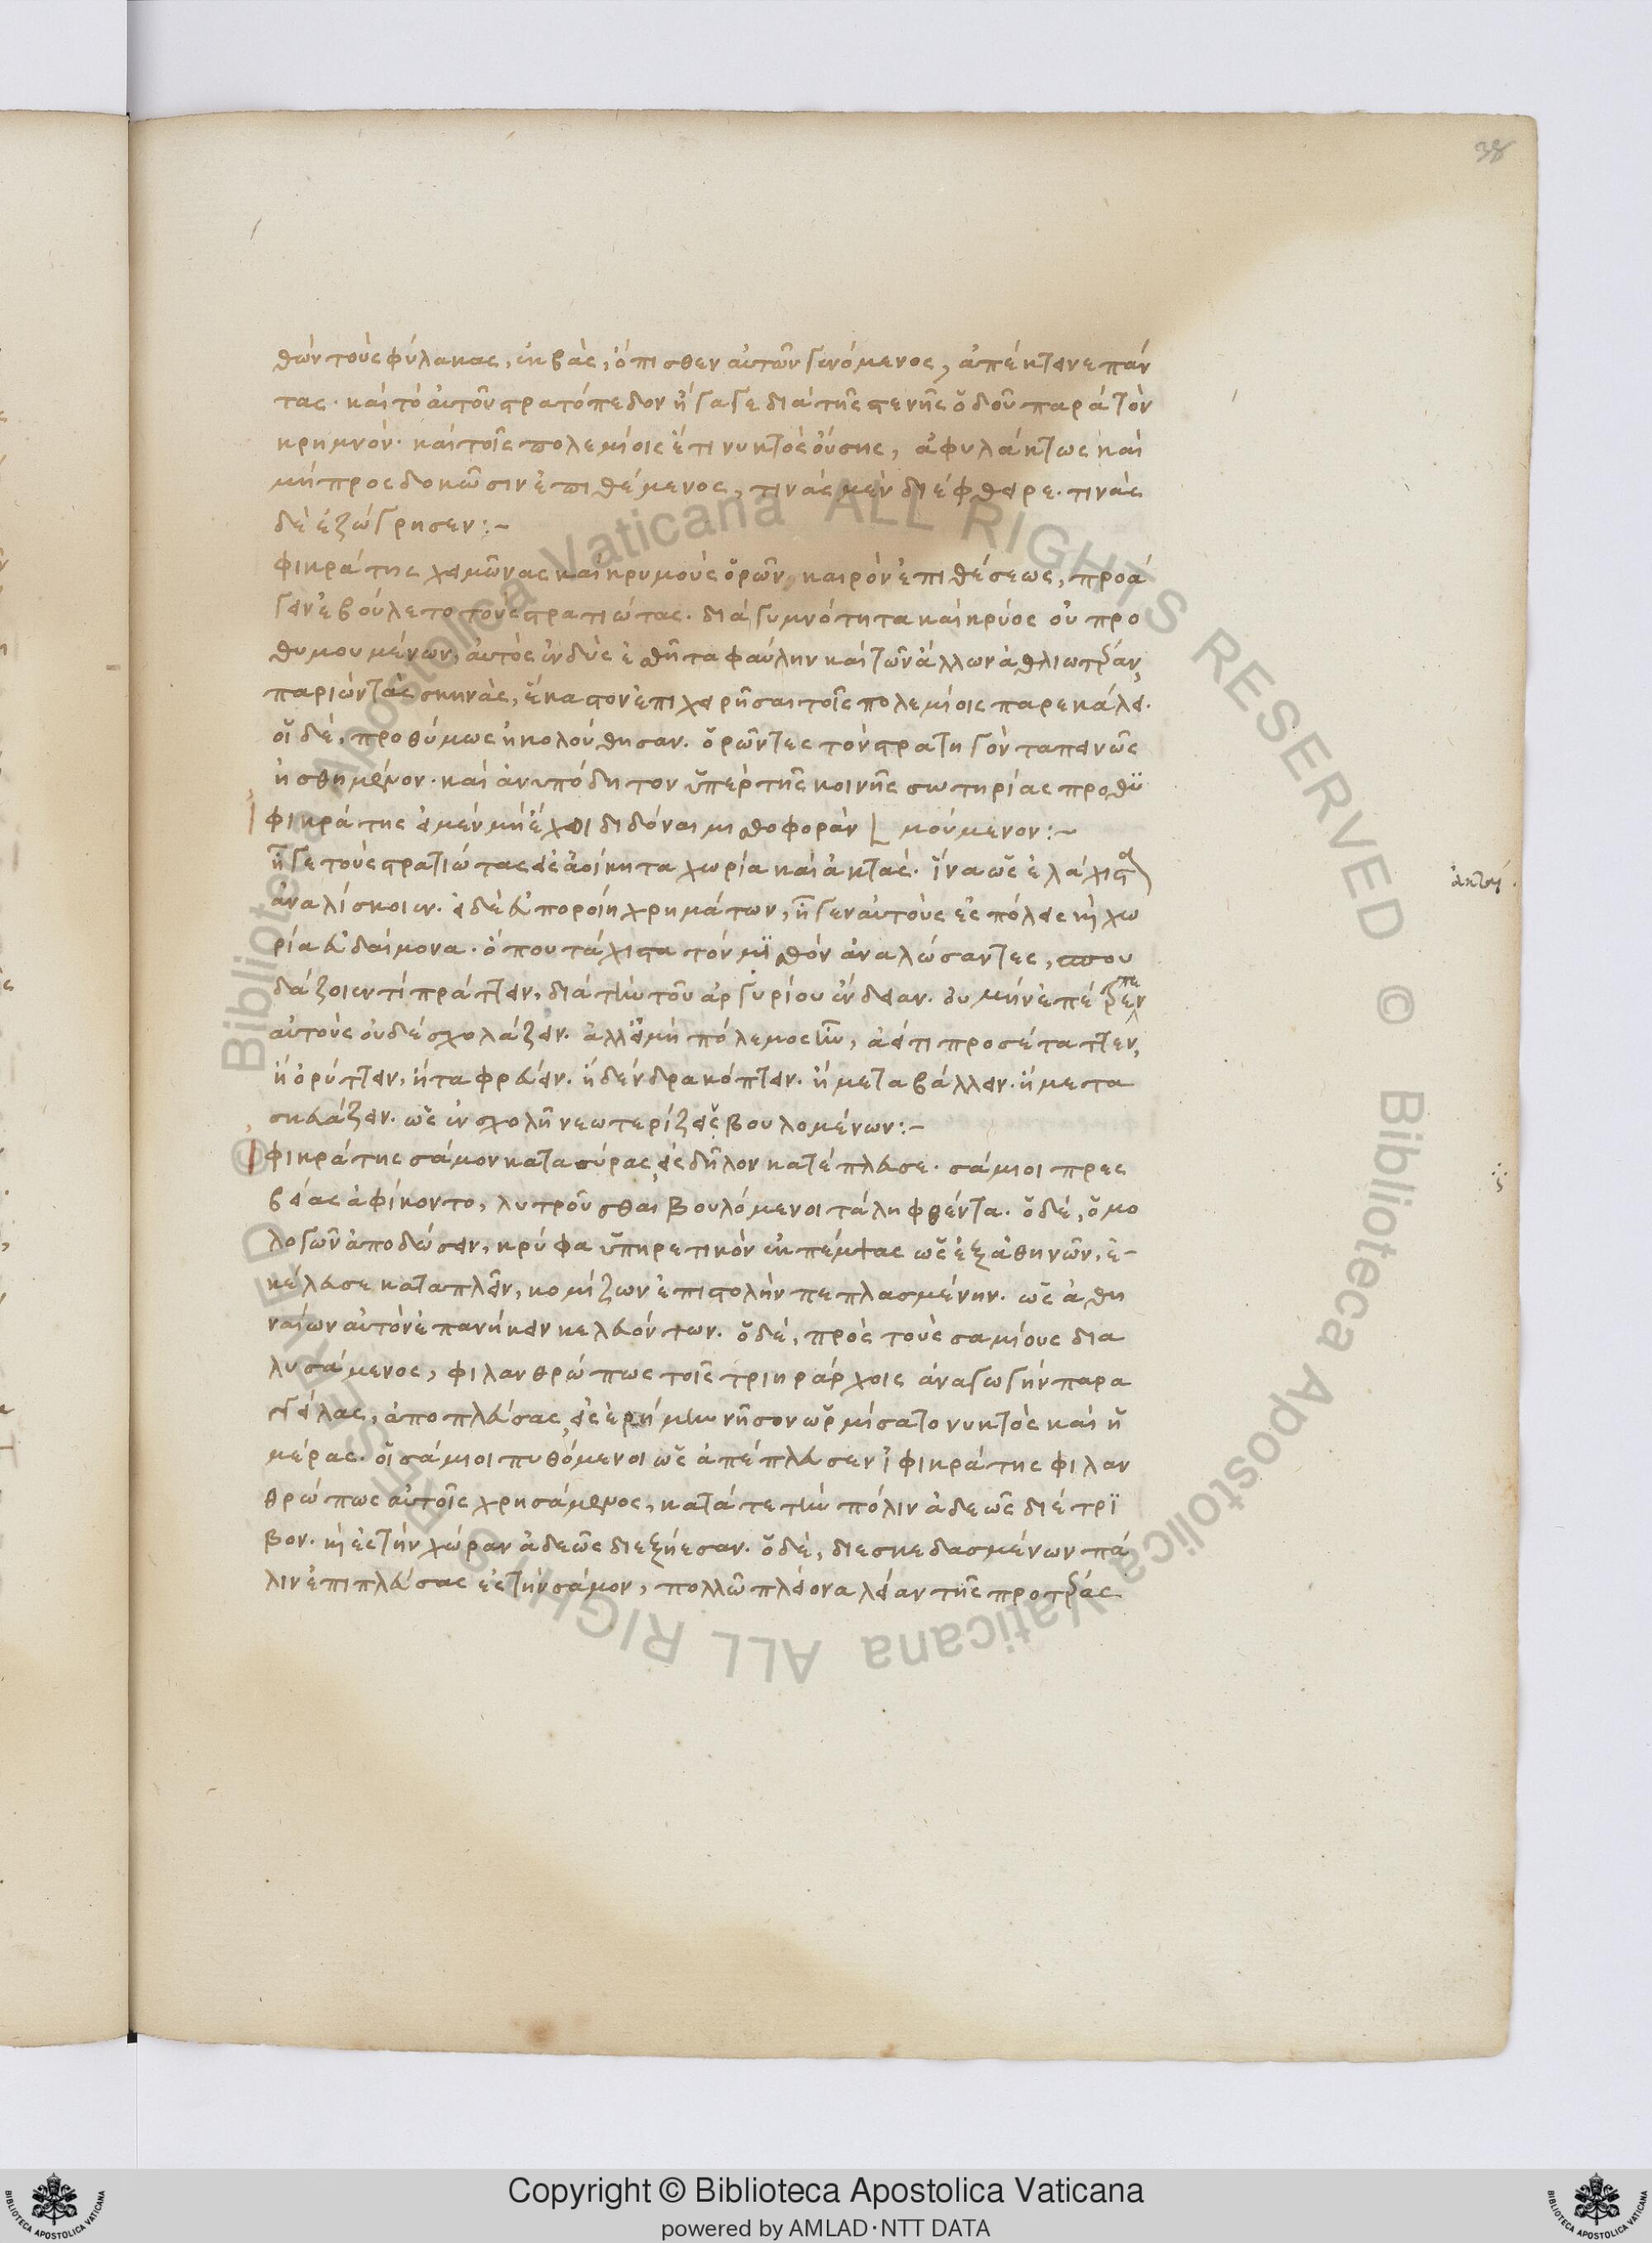 38
θὼν τοὺς φύλακας, ἐκβὰς, ὄπισθεν αὐτῶν γενόμενος, ἀπέκτεινε πάν
τας. καὶ τὸ αὐτοῦ στρατόπεδον ἤγαγε διὰ τῆς στενῆς ὁδοῦ παρὰ τὸν
κρημνόν. καὶ τοῖς πολεμίοις ἔτι νυκτὸς οὔσης, ἀφυλάκτως καὶ
μὴ προσδοκῶσιν ἐπιθέμενος, τινὰς μὲν διέφθειρε. τινὰς
δὲ ἐζώγρησεν:~
φικράτης χειμῶνας καὶ κρυμοὺς ὁρῶν, καιρὸν ἐπιθέσεως, προά
γειν ἐβούλετο τοὺς στρατιώτας. διὰ γυμνότητα καὶ κρύος οὐ προ
θυμουμένων, αὐτὸς ἐνδὺς ἐσθῆτα φαύλην καὶ τῶν ἄλλων ἀθλιωτέραν,
παριὼν τὰς σκηνὰς, ἕκαστον ἐπιχειρῆσαι τοῖς πολεμίοις παρεκάλει.
οἱ δὲ, προθύμως ἠκολούθησαν. ὁρῶντες τὸν στρατηγὸν ταπεινῶς
ἠσθημένον. καὶ ἀνυπόδητον ὑπὲρ τῆς κοινῆς σωτηρίας προθυ
φικράτης εἰ μὲν μὴ ἔχοι διδόναι μισθοφορὰν μούμενον:~
ἦγε τοὺς στρατιώτας εἰς ἀοίκητα χωρία καὶ ἀκτάς. ἵνα ὡς ἐλάχιστα
ἀναλίσκοιεν. εἰ δὲ εὐποροίη χρημάτων, ἦγεν αὐτοὺς ἐς πόλεις καὶ χω
ρία εὐδαίμονα. ὅπου τάχιστα τὸν μισθὸν ἀναλώσαντες, σπου
δάζοιεν τὶ πράττειν, διὰ τὴν τοῦ ἀργυρίου ἔνδειαν. οὐ μὴν ἐπέτρεπεν
αὐτοὺς οὐδὲ σχολάζειν. ἀλλ' εἰ μὴ πόλεμος ἦν, ἀεί τι προσέταττεν,
ἢ ὀρύττειν, ἢ ταφρεύειν. ἢ δένδρα κόπτειν. ἢ μεταβάλλειν. ἢ μετα
σκευάζειν. ὡς ἐν σχολῇ νεωτερίζειν βουλομένων:~
φικράτης σάμον κατασύρας, εἰς δῆλον κατέπλευσε. σάμιοι πρεσ
βείας ἀφίκοντο, λυτροῦσθαι βουλόμενοι τὰ ληφθέντα. ὁ δὲ, ὁμο
λογῶν ἀποδώσειν, κρύφα ὑπηρετικὸν ἐκπέμψας ὡς ἐξ ἀθηνῶν, ἐ-
κέλευσε καταπλεῖν, κομίζων ἐπιστολὴν πεπλασμένην. ὡς ἀθη
ναίων αὐτὸν ἐπανήκειν κελευόντων. ὁ δὲ, πρὸς τοὺς σαμίους δια
λυσάμενος, φιλανθρώπως τοῖς τριηράρχοις ἀναγωγὴν παρα
γγείλας, ἀποπλεύσας, εἰς ἐρήμην νῆσον ὡρμίσατο νυκτὸς καὶ ἡ
μέρας. οἱ σάμιοι πυθόμενοι ὡς ἀπέπλευσεν ἰφικράτης φιλαν
θρώπως αὐτοῖς χρησάμενος, κατά τε τὴν πόλιν ἀδεῶς διέτρι
βον. καὶ ἐς τὴν χώραν ἀδεῶς διεξῄεσαν. ὁ δὲ, διεσκεδασμένων πά
λιν ἐπιπλεύσας ἐς τὴν σάμον, πολλῷ πλείονα λείαν τῆς προτέρας
ἀκταί.
© Biblioteca Apostolica Vaticana ALL RIGHTS RESERVED © Biblioteca Apostolica Vaticana ALL RIGHTS RESERVED
Copyright © Biblioteca Apostolica Vaticana
powered by AMLAD·NTT DATA
BIBLIOTECA APOSTOLICA VATICANA
BIBLIOTECA APOSTOLICA VATICANA